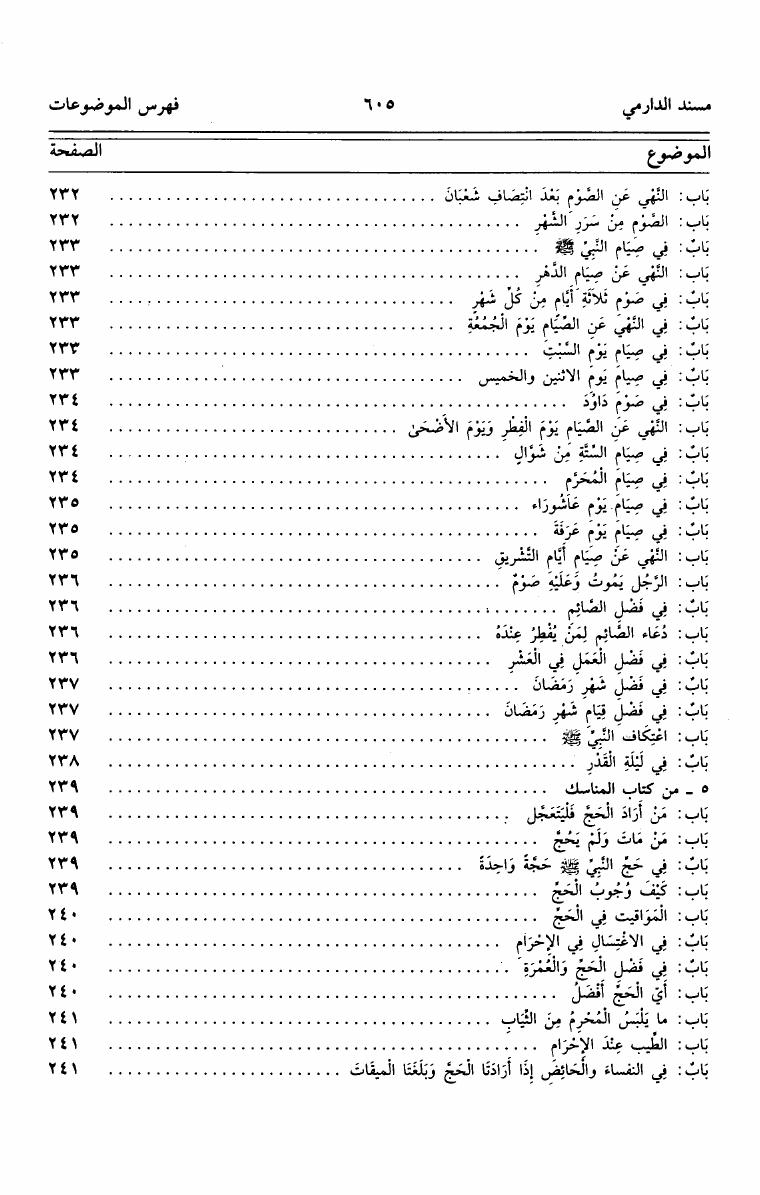 مسند الدارمي ٦٠٥ فهرس الموضوعات
الموضوع الصفحة
بَاب: النَّهْي عَنِ الصَّوْمِ بَعْدَ انْتِصَافِ شَعْبَانَ ٢٣٢
بَاب: الصَّوْم مِنْ سَرَرِ الشَّهْرِ ٢٣٢
بَابٌ: فِي صِيَامِ النَّبِيِّ ﷺ ٢٣٣
بَاب: النَّهْي عَنْ صِيَامِ الدَّهْرِ ٢٣٣
بَابٌ: فِي صَوْمِ ثَلَاثَةِ أَيَّامٍ مِنْ كُلِّ شَهْرٍ ٢٣٣
بَابٌ: فِي النَّهْيِ عَنِ الصِّيَامِ يَوْمَ الْجُمُعَةِ ٢٣٣
بَابٌ: فِي صِيَامِ يَوْمِ السَّبْتِ ٢٣٣
بَابٌ: فِي صيامِ يَومِ الاثنين والخميس ٢٣٣
بَابٌ: فِي صَوْمِ دَاوُدَ ٢٣٤
بَاب: النَّهْي عَنِ الصِّيَامِ يَوْمَ الْفِطْرِ وَيَوْمَ الأَضْحَىٰ ٢٣٤
بَابٌ: فِي صِيَامِ السِّتَّةِ مِنْ شَوَّالٍ ٢٣٤
بَابٌ: فِي صِيَامِ الْمُحَرَّمِ ٢٣٤
بَابٌ: فِي صِيَامِ يَوْمِ عَاشُورَاء ٢٣٥
بَابٌ: فِي صِيَامِ يَوْمِ عَرَفَةَ ٢٣٥
بَاب: النَّهْي عَنْ صِيَامِ أَيَّامِ التَّشْرِيقِ ٢٣٥
بَاب: الرَّجُل يَمُوتُ وَعَلَيْهِ صَوْمٌ ٢٣٦
بَابٌ: فِي فَضْلِ الصَّائِمِ ٢٣٦
بَاب: دُعَاء الصَّائِمِ لِمَنْ يُفْطِرُ عِنْدَهُ ٢٣٦
بَابٌ: فِي فَضْلِ الْعَمَلِ فِي الْعَشْرِ ٢٣٦
بَابٌ: فِي فَضْلِ شَهْرِ رَمَضَانَ ٢٣٧
بَابٌ: فِي فَضْلِ قِيَامِ شَهْرِ رَمَضَانَ ٢٣٧
بَاب: اعْتِكَاف النَّبِيِّ ﷺ ٢٣٧
بَابٌ: فِي لَيْلَةِ الْقَدْرِ ٢٣٨
٥ - من كتاب المناسك ٢٣٩
بَاب: مَنْ أَرَادَ الْحَجَّ فَلْيَتَعَجَّل ٢٣٩
بَاب: مَنْ مَاتَ وَلَمْ يَحُجَّ ٢٣٩
بَابٌ: فِي حَجِّ النَّبِيِّ ﷺ حَجَّةً وَاحِدَةً ٢٣٩
بَاب: كَيْفَ وُجُوبُ الْحَجِّ ٢٣٩
بَاب: الْمَوَاقيت فِي الْحَجِّ ٢٤٠
بَابٌ: فِي الاغْتِسَالِ فِي الإِحْرَامِ ٢٤٠
بَابٌ: فِي فَضْلِ الْحَجِّ وَالْعُمْرَةِ ٢٤٠
بَاب: أَيّ الْحَجِّ أَفْضَلُ ٢٤٠
بَاب: ما يَلْبَسُ الْمُحْرِمُ مِنَ الثِّيَابِ ٢٤١
بَاب: الطِّيب عِنْدَ الإِحْرَامِ ٢٤١
بَابٌ: فِي النفساءَ والْحَائِضِ إِذَا أَرَادَتَا الْحَجَّ وَبَلَغَتَا الْميقَاتَ ٢٤١